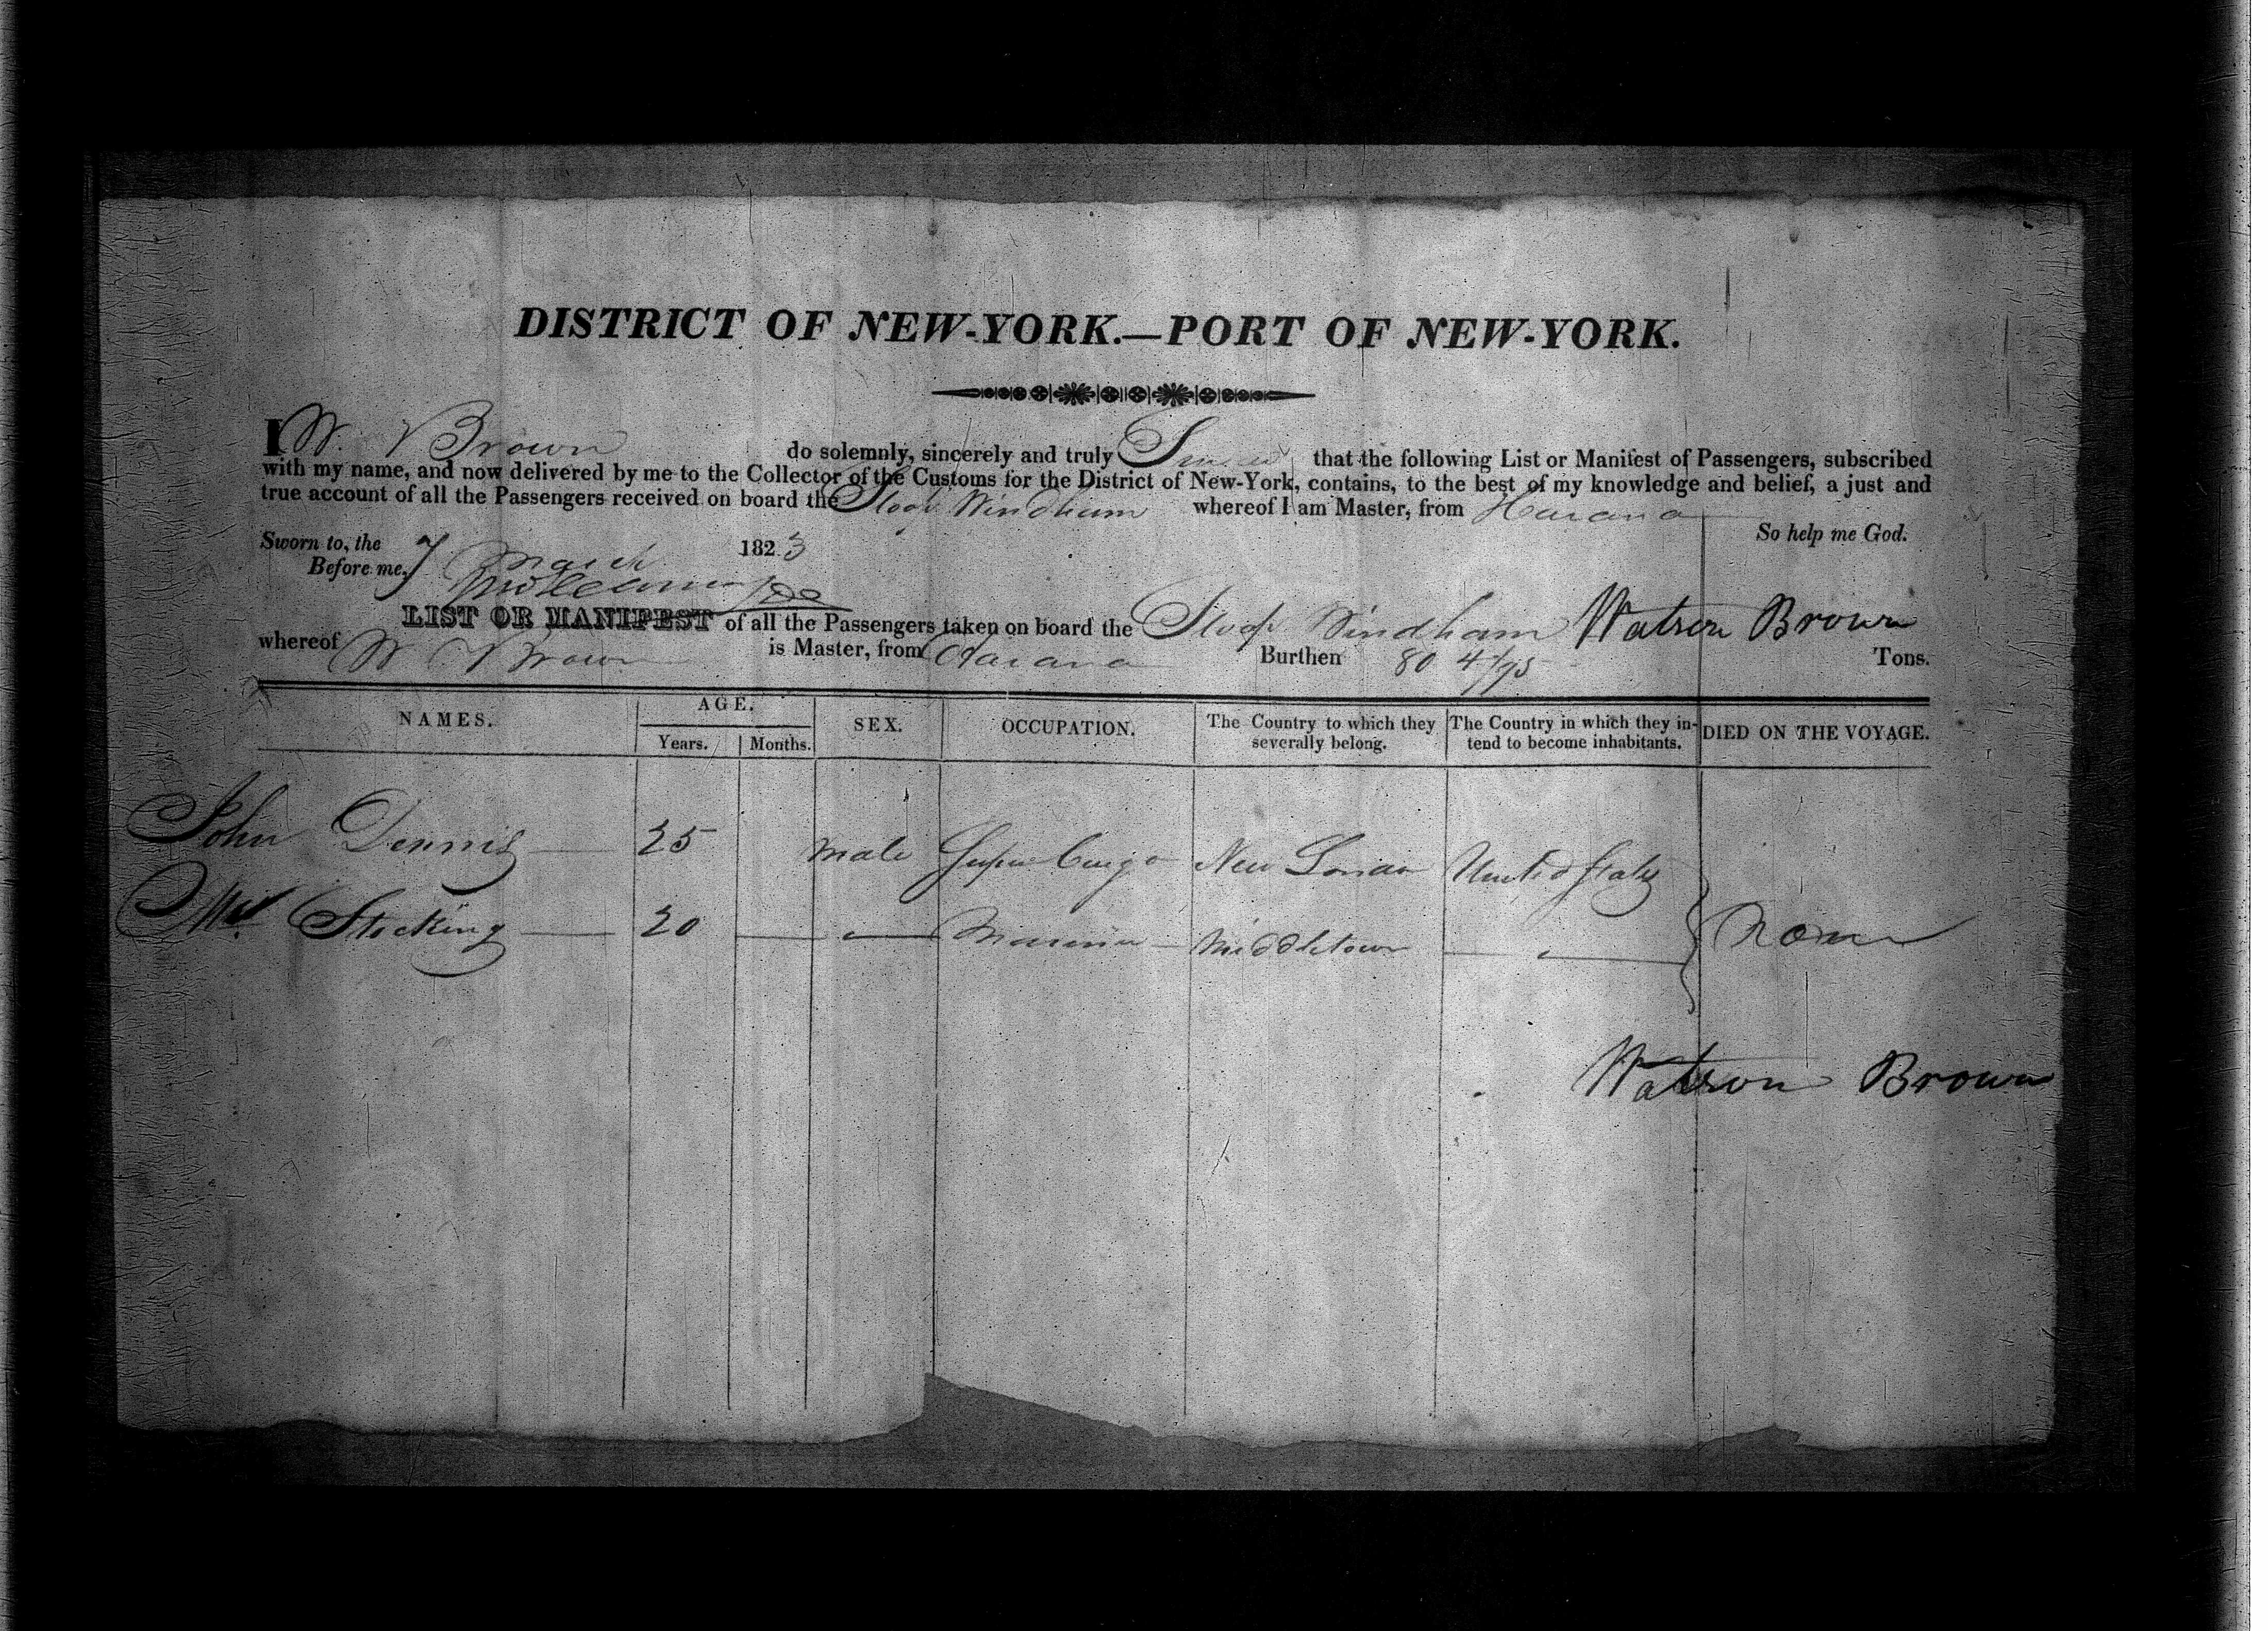 DISTRICT OF NEW-YORK.—PORT OF NEW-YORK.
I W. Brown do solemnly, sincerely and truly Swear that the following List or Manifest of Passengers, subscribed
with my name, and now delivered by me to the Collector of the Customs for the District of New-York, contains, to the best of my knowledge and belief, a just and
true account of all the Passengers received on board the Sloop Windham whereof I am Master, from Havana
So help me God.
Sworn to, the 7 March 1823
Before me,
Watson Brown
LIST OR MANIFEST of all the Passengers taken on board the Sloop Windham
whereof W. Brown is Master, from Havana Burthen 80 4/95 Tons.
NAMES. AGE. SEX. OCCUPATION. The Country to which they severally belong. The Country in which they intend to become inhabitants. DIED ON THE VOYAGE.
Years. Months.
John Dennis 25 male Super Cargo New London United States
Stocking 20 Mariner Middletown None
Watson Brown